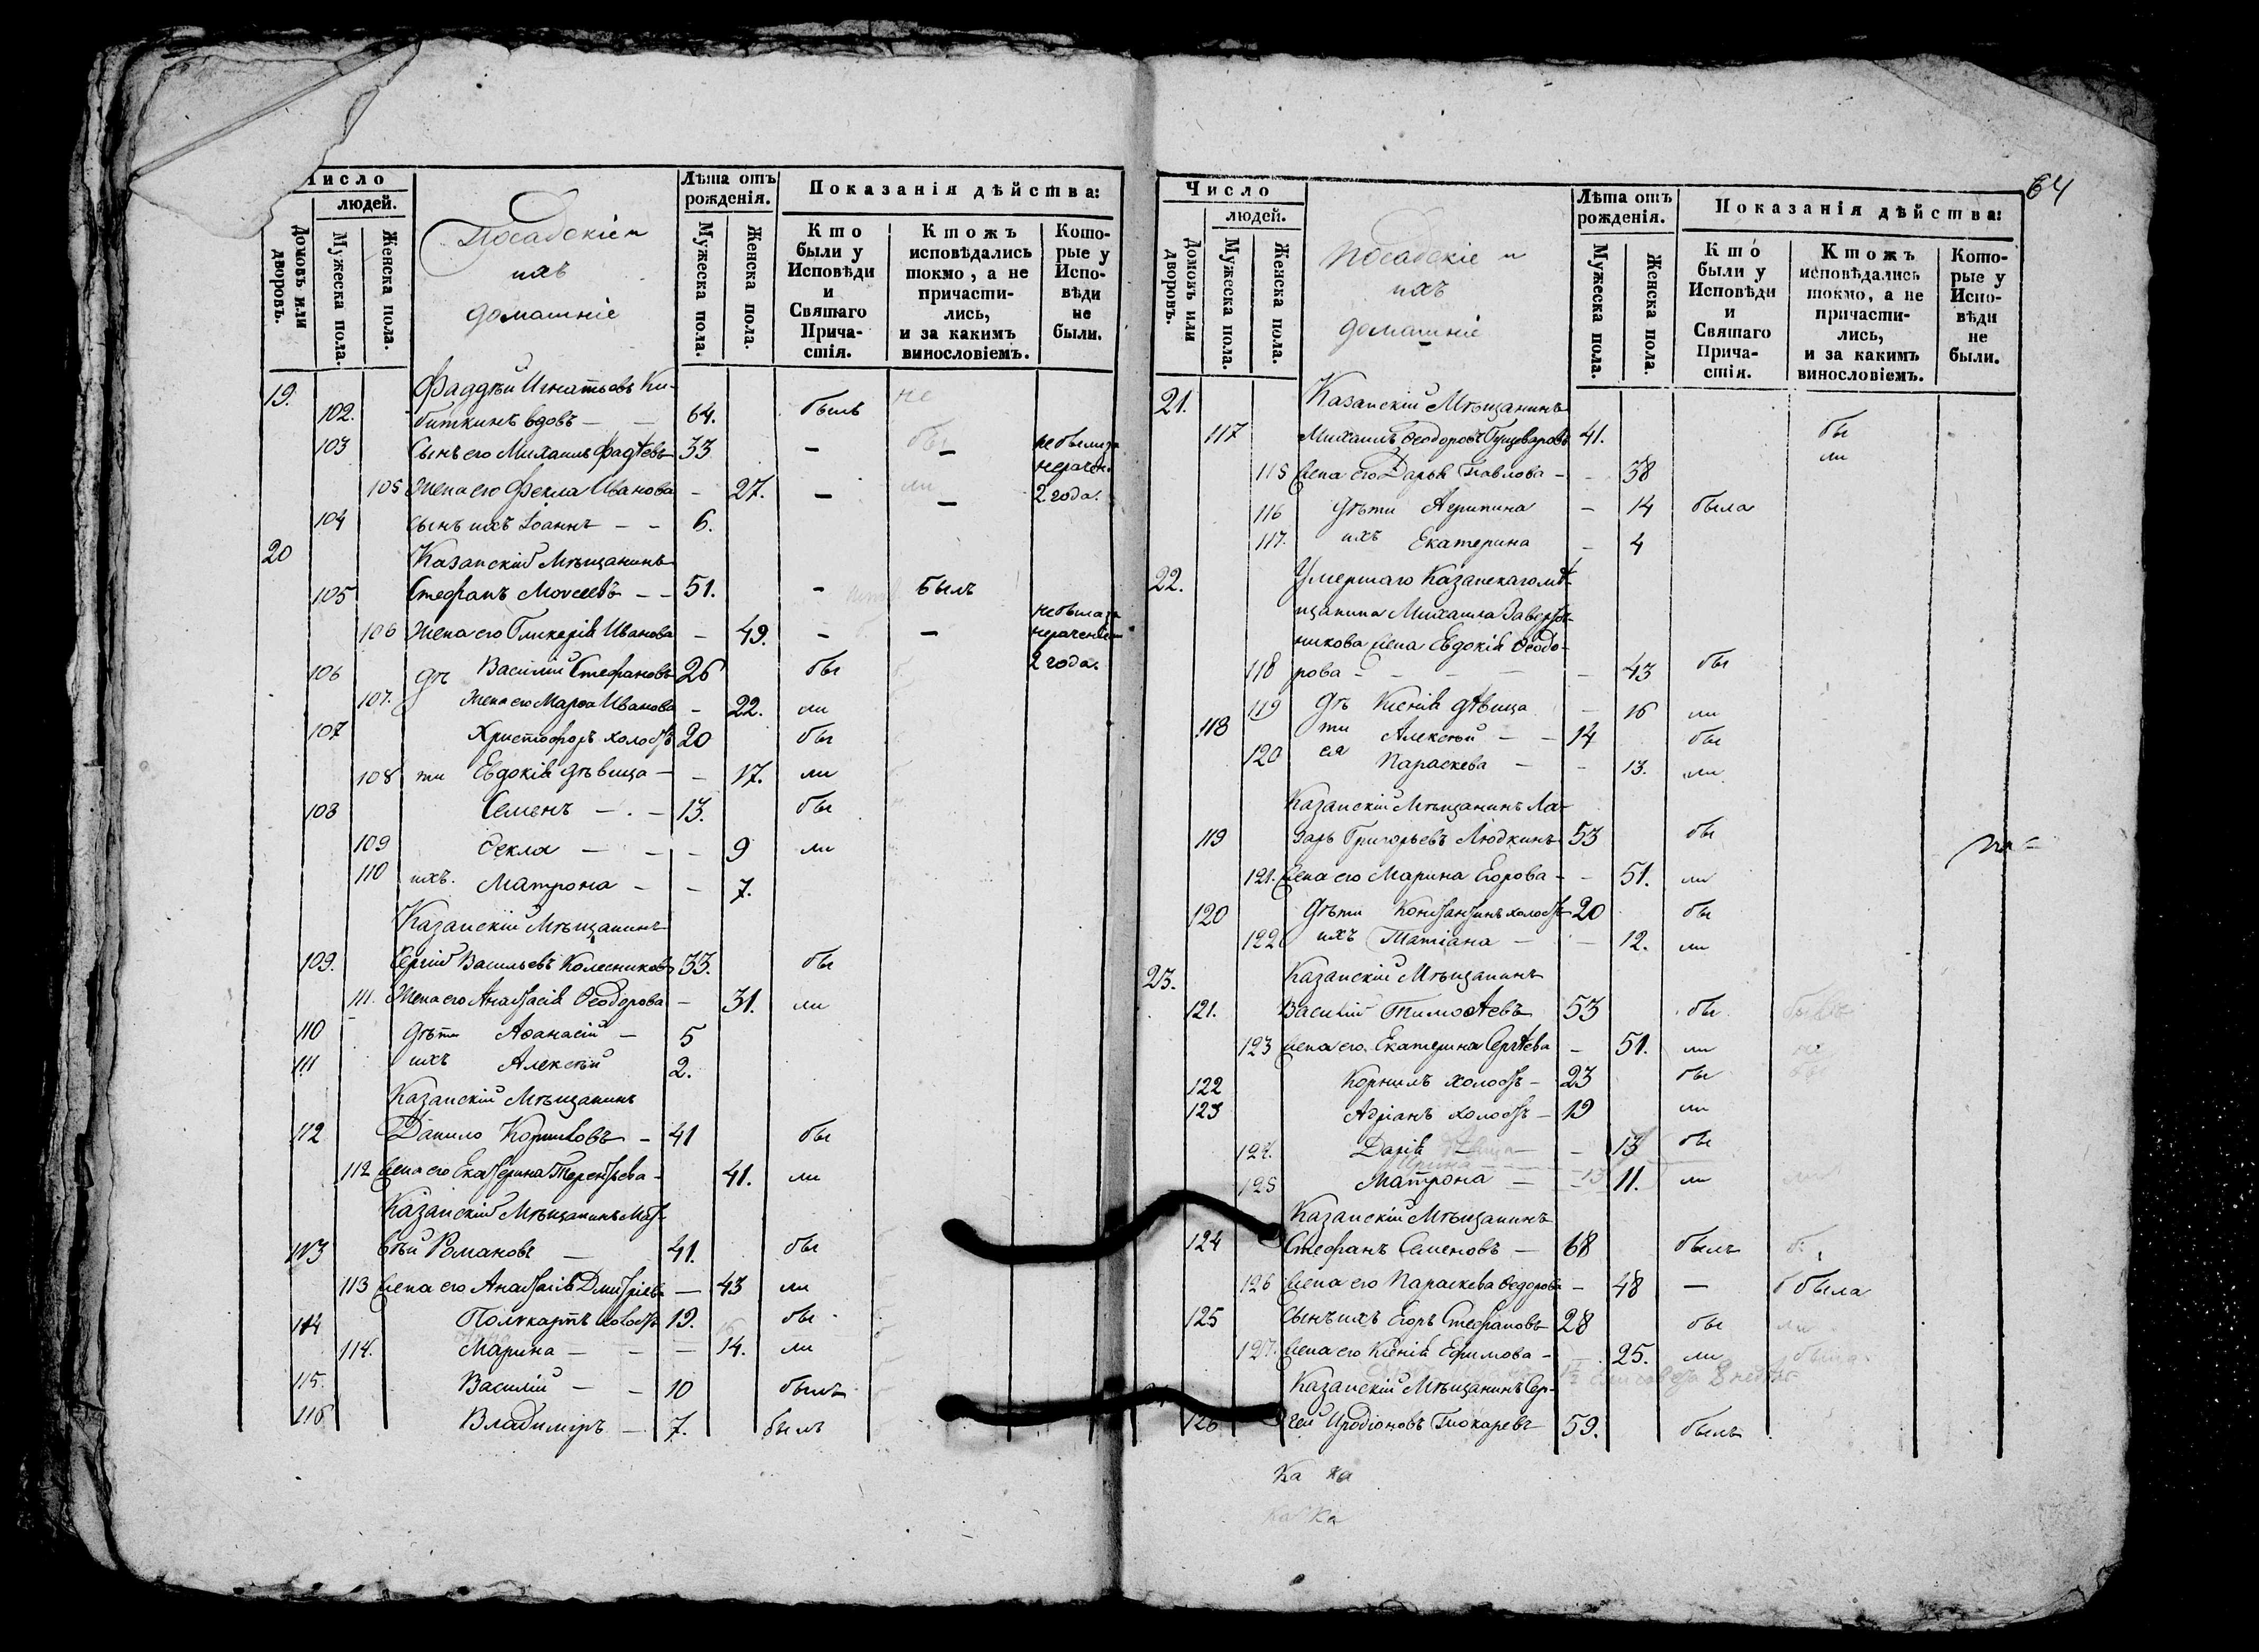 Число
людей.
Домовъ или дворовъ.
Мужеска пола.
Женска пола.
Посадскіе и
ихъ
домашніе
Лѣта отъ рожденія.
Мужеска пола.
Женска пола.
Показанія дѣйства:
Кто были у Исповѣди и Святаго Причастія.
Ктожъ исповѣдались токмо, а не причастились, и за какимъ винословіемъ.
Которые у Исповѣди не были.
19. Фаддѣй Игнатьевъ Ки-
102. биткинъ вдовъ — — 64. былъ
103 Сынъ его Михаилъ Фадѣевъ 33 — — не были за
105 Жена его Фекла Иванова — 27. — — нерачен. 2 года.
104 сынъ ихъ Іоаннъ — — 6.
20 Казанскій Мѣщанинъ
105 Стефанъ Моисеевъ — — 51. — былъ
106 Жена его Гликерія Иванова — 49. — — не была за нерачением 2 года.
106 дѣ Василій Стефановъ 26 бы
107. Жена его Марфа Иванова — 22. ли
107 Христофоръ холостъ 20 бы
108 ти Евдокія дѣвица — — 17. ли
108 Семенъ — . — 13. бы
109 Фекла — — — 9 ли
110 ихъ. Матрона — — 7.
Казанскій Мѣщанинъ
109. Сергій Васильевъ Колесниковъ 33. бы
111. Жена его Анастасія Феодорова — 31. ли
110 дѣти Афанасій — 5
111 ихъ Алексѣй 2.
Казанскій Мѣщанинъ
112 Данило Корниловъ — 41 бы
112 Жена его Екатерина Терентьева — 41. ли
Казанскій Мѣщанинъ Мат-
113 вѣй Романовъ — 41. бы
113 Жена его Анастасія Дмитріева — 43 ли
114 Поликарпъ холостъ 19. бы
114. Марина — — — 14. ли
115. Василій — — 10 былъ
116 Владиміръ — 7. былъ
64
Число
людей.
Домовъ или дворовъ.
Мужеска пола.
Женска пола.
Посадскіе и
ихъ
домашніе
Лѣта отъ рожденія.
Мужеска пола.
Женска пола.
Показанія дѣйства:
Кто были у Исповѣди и Святаго Причастія.
Ктожъ исповѣдались токмо, а не причастились, и за какимъ винословіемъ.
Которые у Исповѣди не были.
21. Казанскій Мѣщанинъ
117 Михаилъ Феодоровъ 41. бы
115 Жена его Дарья Павлова — — 38 ли
116 дѣти Агрипина — 14 была
117. ихъ Екатерина — 4
22. Умершаго Казанскаго мѣ-
щанина Михаила
никова жена Евдокія Феодо-
118 рова — — — — — 43 бы
119 дѣ Ксенія дѣвица — 16 ли
118 ти Алексѣй — — 14 бы
120 ея Параскева — — 13. ли
Казанскій Мѣщанинъ Ла-
119 зарь Григорьевъ Людкинъ 53 бы
121. Жена его Марина Егорова — — 51. ли
120 Дѣти Константинъ холостъ 20 бы
122 ихъ Татіана — — 12. ли
23. Казанскій Мѣщанинъ
121. Василій Тимофѣевъ 53 бы
123 Жена его Екатерина Сергѣева — 51. ли
122 Корнилъ холостъ — 23 бы
123 Адріанъ холостъ — 19 ли
124. Дарія — — 13 бы
125 Матрона — — 11. ли
Казанскій Мѣщанинъ
124 Стефанъ Семеновъ — 68 былъ
126 Жена его Параскева Федорова — 48 — была
125 Сынъ ихъ Егоръ Стефановъ 28 бы
127. Жена его Ксенія Ефимова — — 25. ли
Казанскій Мѣщанинъ Сер-
126 гей Иродіоновъ Токаревъ 59. былъ
Ка ка
Ка Ка